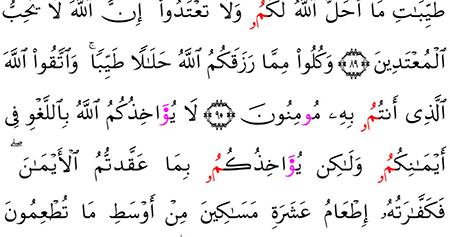 طَيِّبَٰتِ مَا أَحَلَّ ٱللَّهُ لَكُمُۥ وَلَا تَعْتَدُوا۟ إِنَّ ٱللَّهَ لَا يُحِبُّ
ٱلْمُعْتَدِينَ ٨٩ وَكُلُوا۟ مِمَّا رَزَقَكُمُ ٱللَّهُ حَلَٰلًا طَيِّبًا ۚ وَٱتَّقُوا۟ ٱللَّهَ
ٱلَّذِى أَنتُمُۥ بِهِۦ مُومِنُونَ ٩٠ لَا يُوَاخِذُكُمُ ٱللَّهُ بِٱللَّغْوِ فِى
أَيْمَٰنِكُمُۥ وَلَٰكِن يُوَاخِذُكُمُۥ بِمَا عَقَّدتُّمُ ٱلْأَيْمَٰنَ ۖ
فَكَفَّٰرَتُهُۥ إِطْعَامُ عَشَرَةِ مَسَٰكِينَ مِنْ أَوْسَطِ مَا تُطْعِمُونَ